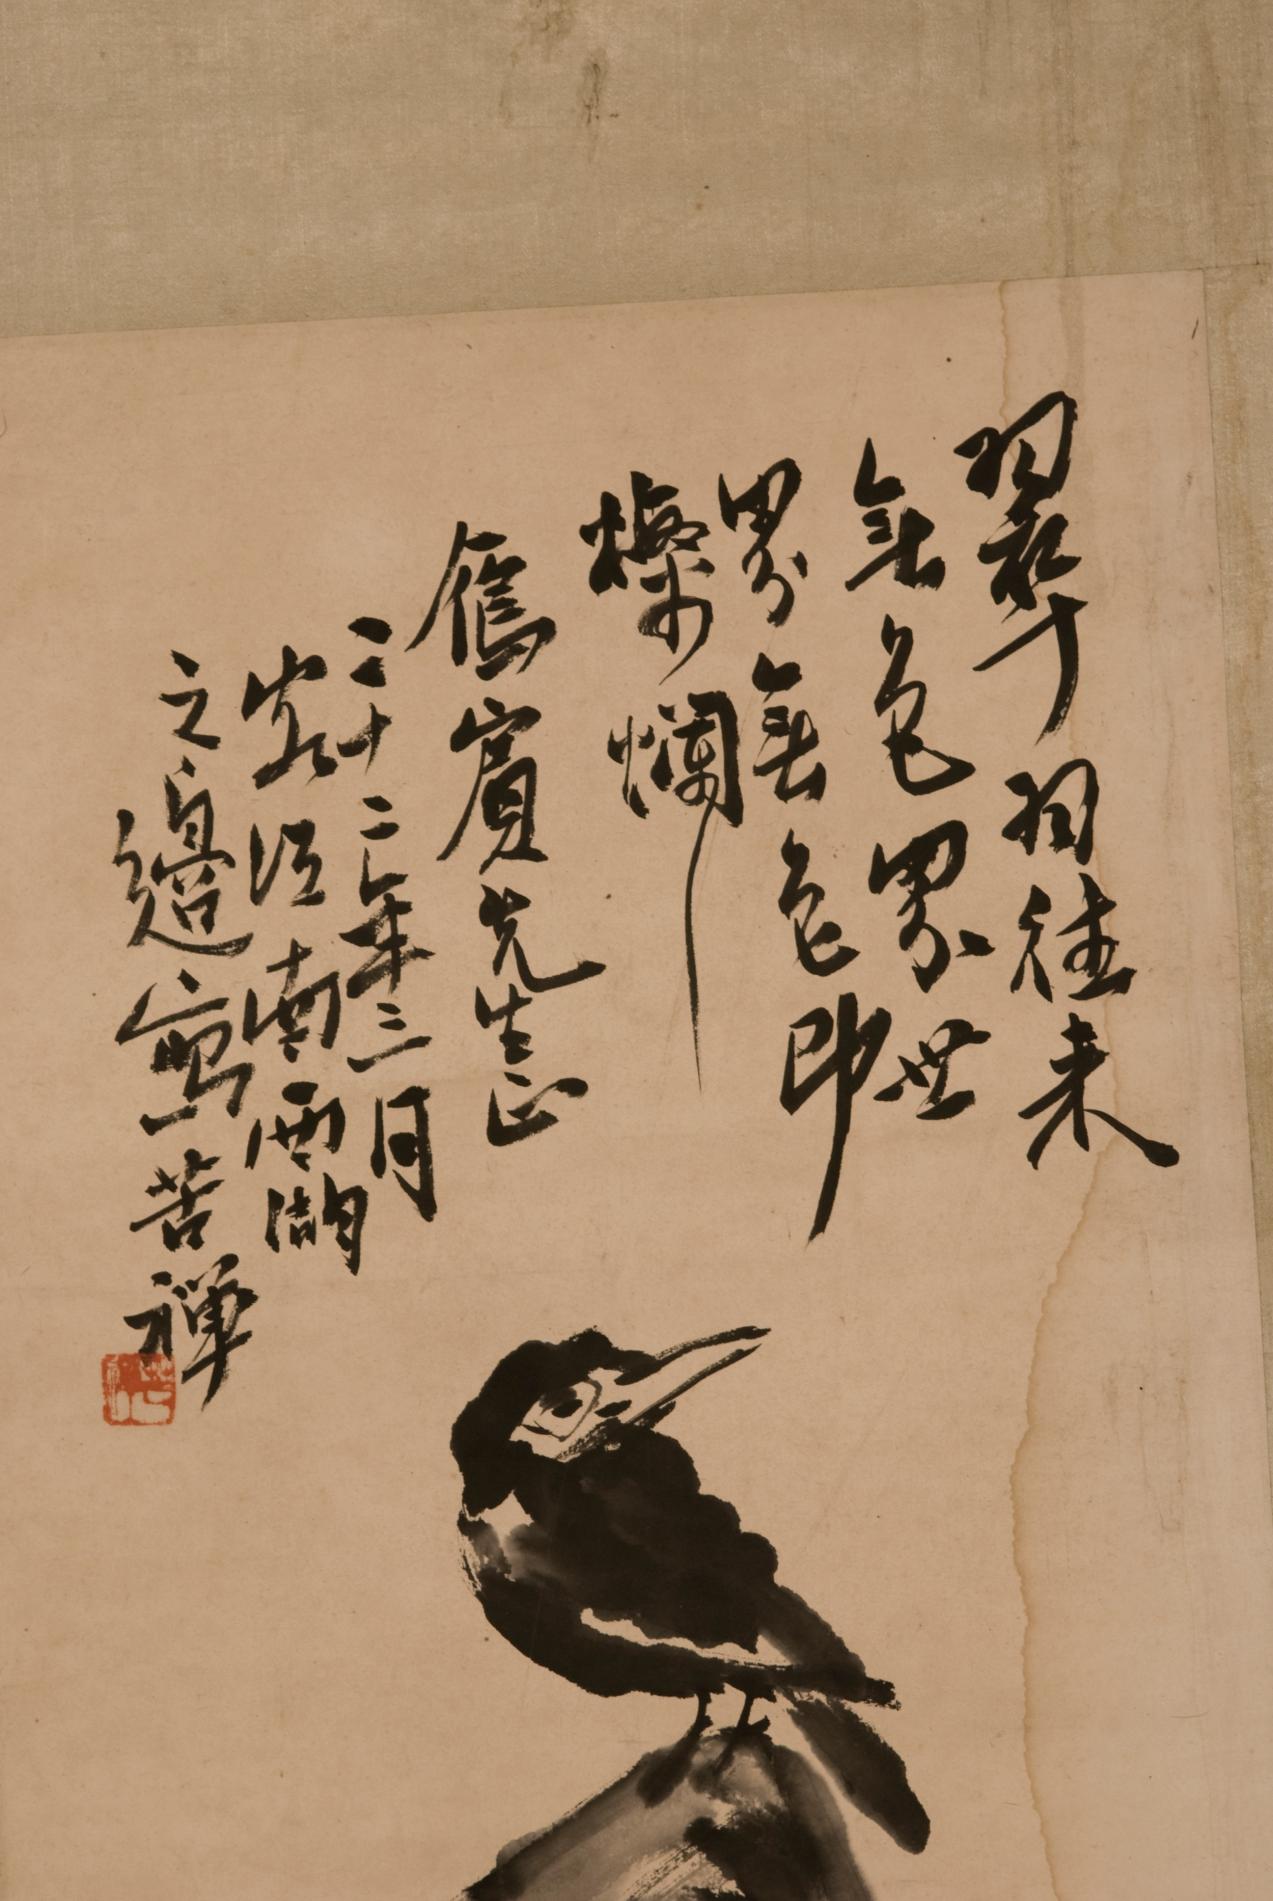 翠羽往来
無色界世
界無色即
燦爛
雁賓先生正
三十二年三月
客江南西湖
之邊寫苦禪